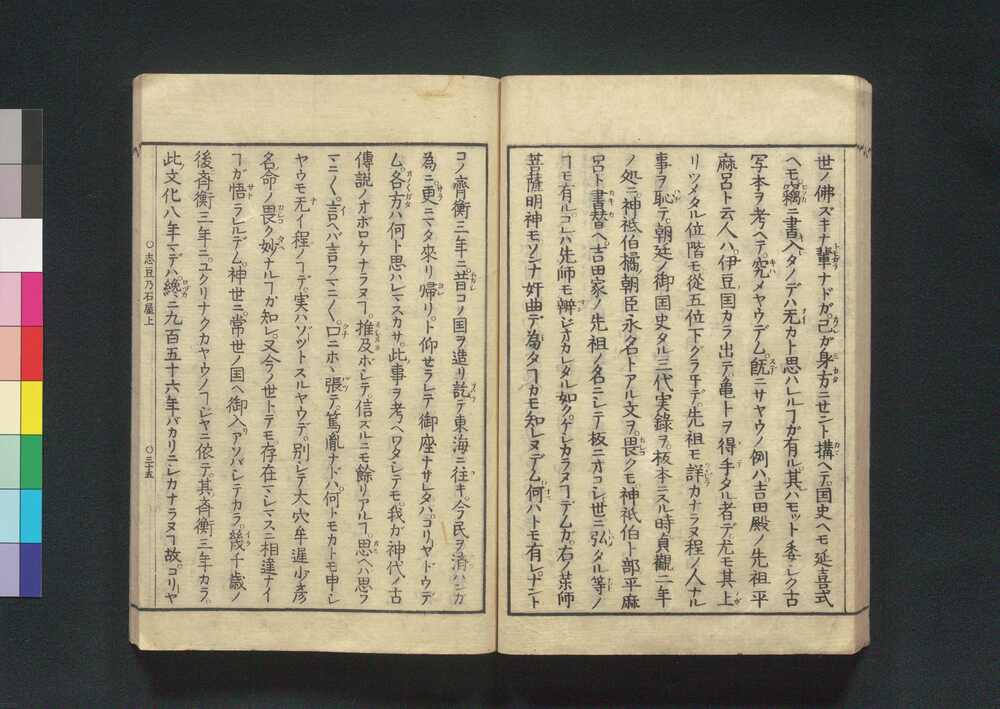 世ノ佛ズキナ輩ナドガ己ガ身方ニせント構ヘテ国史ヘモ延喜式
ヘモ竊ニ書入タノデハ无カト思ハレルヿガ有ル其ハモット委シク古
写本ヲ考ヘテ究メヤウデム既ニサヤウノ例ハ吉田殿ノ先祖平
麻呂ト云人ハ伊豆国カラ出デ亀卜ヲ得手タル者デ尤モ其上
リツメタル位階モ從五位下グラヰデ先祖モ詳カナラヌ程ノ人ナル
事ヲ恥テ朝廷ノ御国史タル三代実録ヲ板本ニスル時貞觀二年
ノ処ニ神祇伯橘朝臣永名トアル文ヲ畏クモ神祇伯卜部平麻
呂ト書替ヘ吉田家ノ先祖ノ名ニシテ板ニオコシ世ニ弘タル等ノ
ヿモ有ルコハ先師モ辨ジオカレタル如クゲシカラヌヿデムガ右ノ薬師
菩薩明神モソンナ奸曲デ為タヿカモ知レヌデム何ハトモ有レナント
コノ齊衡三年ニ昔コノ国ヲ造リ訖テ東海ニ往キ今民ヲ済ハンガ
為ニ更ニマタ來リ帰リト仰せラレテ御座ナサレタハゴリヤドウデ
ム各方ハ何ト思ハレマスカサ此事ヲ考ヘワタシテモ我ガ神代ノ古
傳説ノオボロケナラヌヿ推及ホシテ信ズルニモ餘リアルヿ思ヘハ思フ
マニ〱言ヘバ言フマニ〱口ニホヽ張テ篤胤ナドハ何トモカトモ申シ
ヤウモ无イ程ノヿデ実ハゾヾットスルヤウデ別シテ大穴牟遅少彦
名命ノ畏ク妙ナルヿガ知レ又今ノ世トテモ存在マシマスニ相違ナイ
ヿガ悟ラレルデム神世ニ常世ノ国ヘ御入アソバシテカラ幾千歳ノ
後斉衡三年ニユクリナクカヤウノヿジヤニ依テ其斉衡三年カラ
此文化八年マデハ纔ニ九百五十六年バカリニシカナラヌヿ故ゴリヤ
○志豆乃石屋上
○三十五